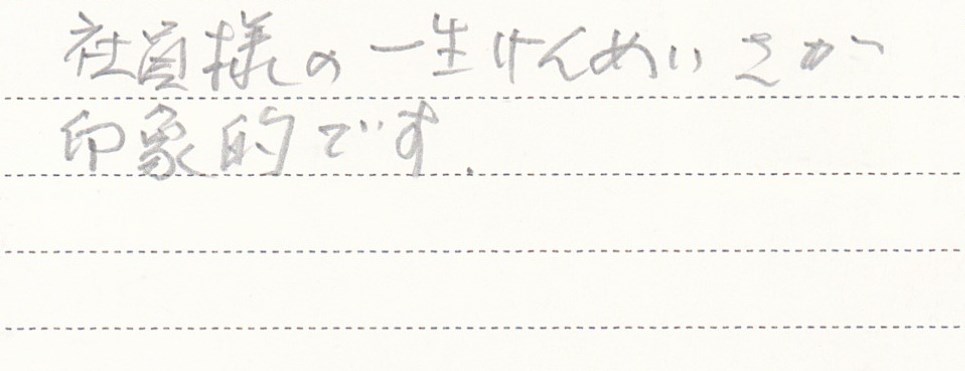 社員様の一生けんめいさが
印象的です.